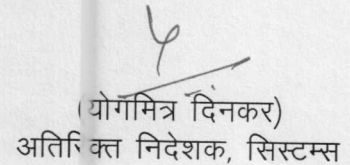 (योगमित्र दिनकर)
अतिरिक्त निदेशक, सिस्टम्स